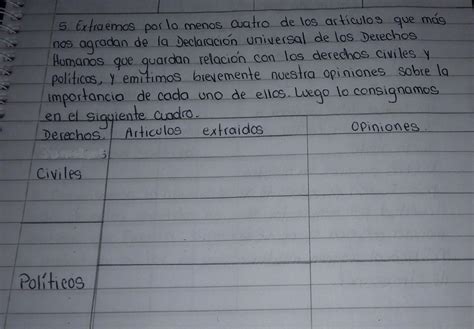 5. Extraemos por lo menos cuatro de los artículos que más
nos agradan de la Declaración universal de los Derechos
Humanos que guardan relación con los derechos civiles y
políticos, y emitimos brevemente nuestra opiniones sobre la
importancia de cada uno de ellos. Luego lo consignamos
en el siguiente cuadro.
Derechos. Articulos extraidos Opiniones.
Civiles
Políticos